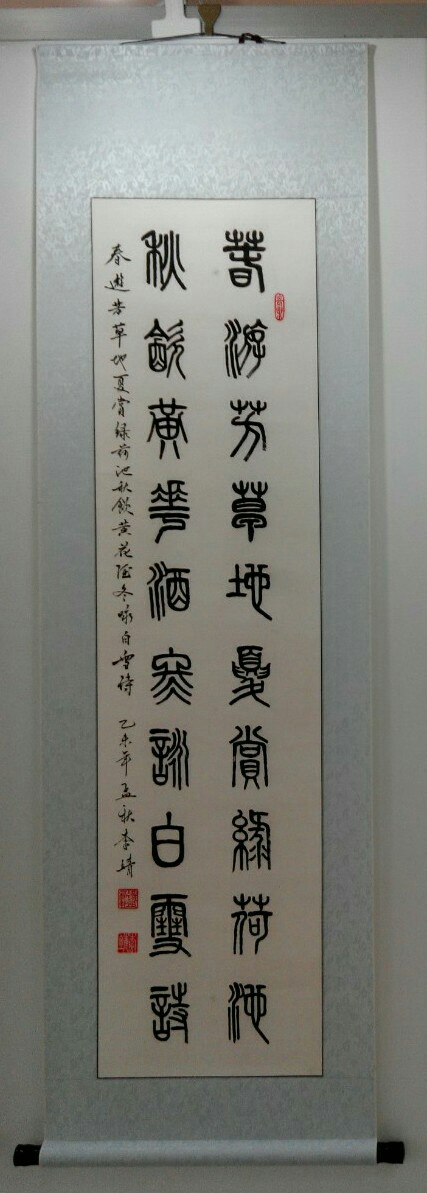 春游芳草地夏賞綠荷池
秋飲黃花酒冬詠白雪詩
春遊芳草地夏賞绿荷池秋飲黄花酒冬咏白雪诗 乙未年孟秋李靖